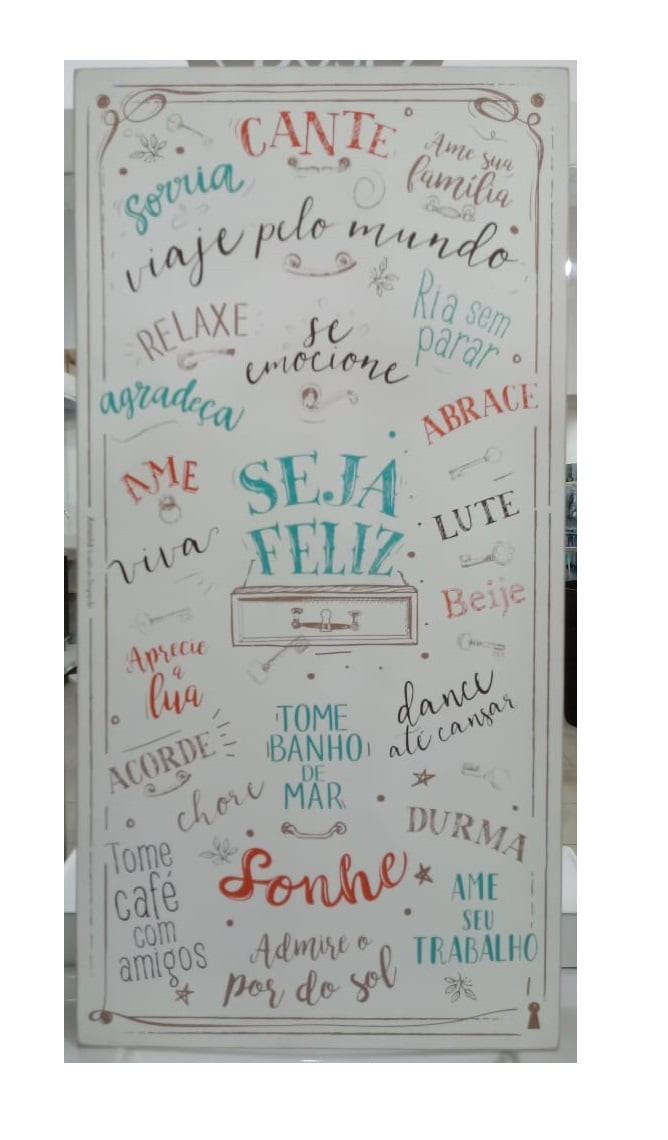 CANTE
Ame sua
família
sorria
viaje pelo mundo
RELAXE
se
emocione
Ria sem
parar
agradeça
ABRACE
AME
SEJA
FELIZ
LUTE
viva
Beije
Aprecie
a
lua
dance
até cansar
TOME
BANHO
DE
MAR
ACORDE
chore
DURMA
Tome
café
com
amigos
Sonhe
AME
SEU
TRABALHO
Admire o
por do sol